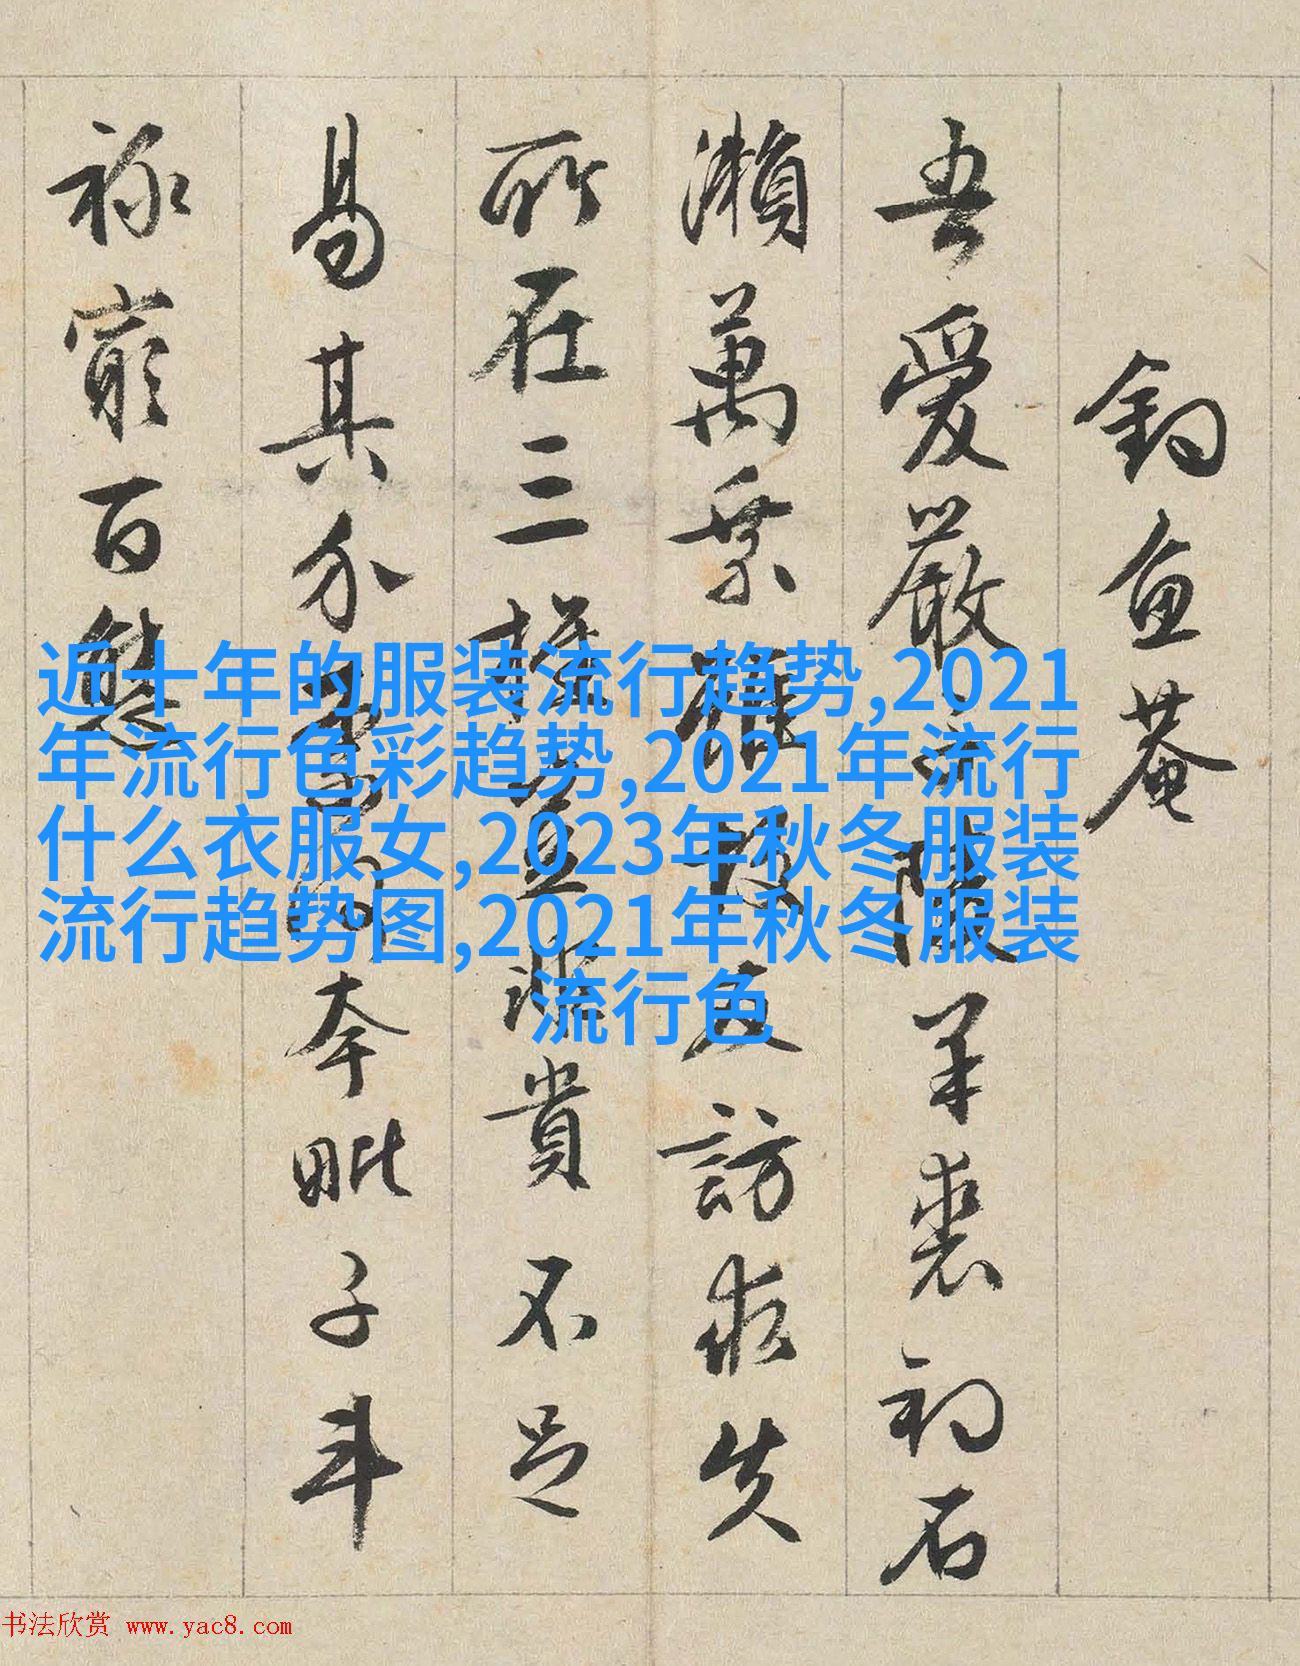 釣魚菴
吾愛嚴 陵羊裘初石
瀨萬乘 訪求失
所在三 貴不足
易其介 奉毗子斗
祿窮百
近十年的服装流行趋势,2021
年流行色彩趋势,2021年流行
什么衣服女,2023年秋冬服装
流行趋势图,2021年秋冬服装
流行色
书法欣赏 www.yac8.com